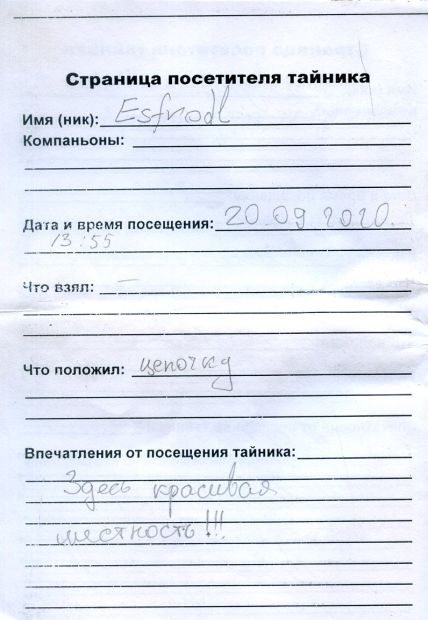 Страница посетителя тайника
Имя (ник): Esfriodl
Компаньоны:
Дата и время посещения: 20.09.2020.
13:55
Что взял: —
Что положил: цепочку
Впечатления от посещения тайника:
Здесь красивая
местность!!!